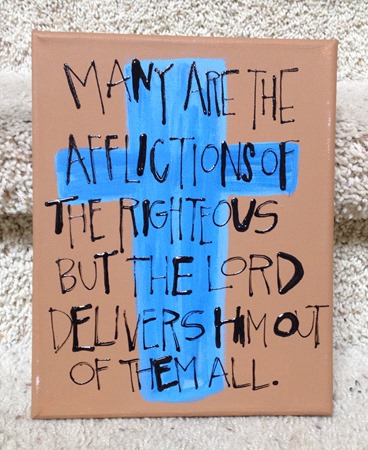 MANY ARE THE
AFFLICTIONS OF
THE RIGHTEOUS
BUT THE LORD
DELIVERS HIM OUT
OF THEM ALL.